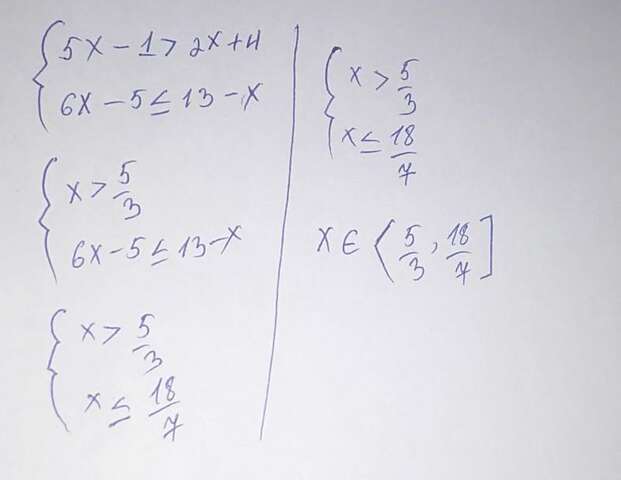 5x - 1 > 2x + 4
6x - 5 ≤ 13 - x
x > 5/3
6x - 5 ≤ 13 - x
x > 5/3
x ≤ 18/7
x > 5/3
x ≤ 18/7
x ∈ (5/3, 18/7]